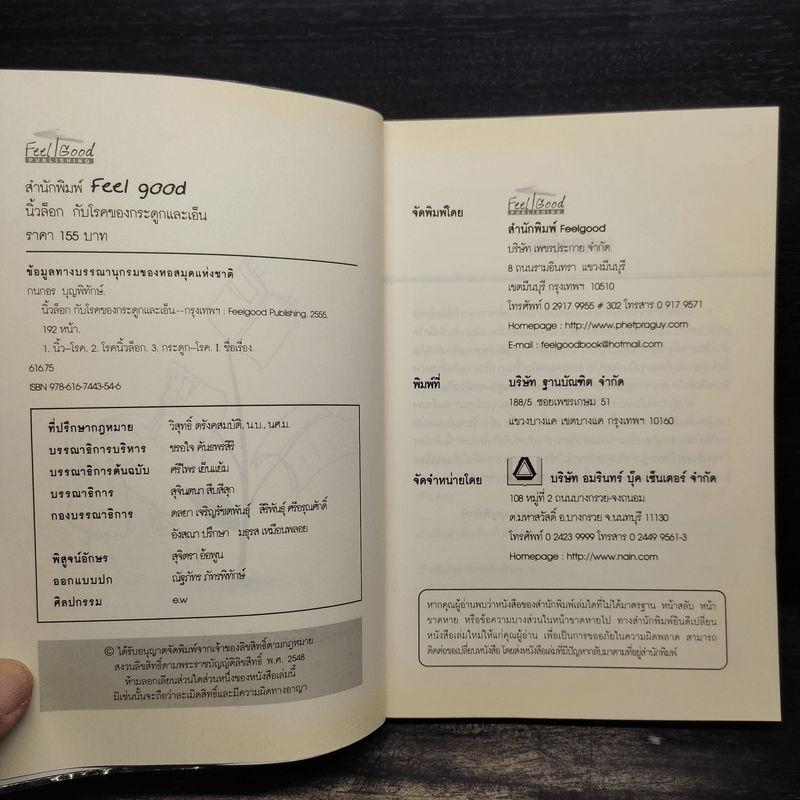 Feel Good
PUBLISHING
สำนักพิมพ์ Feel good
นิ้วล็อก กับโรคของกระดูกและเอ็น
ราคา 155 บาท
ข้อมูลทางบรรณานุกรมของหอสมุดแห่งชาติ
กนกอร บุญพิทักษ์.
นิ้วล็อก กับโรคของกระดูกและเอ็น.--กรุงเทพฯ : Feelgood Publishing, 2555.
192 หน้า.
1. นิ้ว--โรค. 2. โรคนิ้วล็อก. 3. กระดูก--โรค. I. ชื่อเรื่อง.
616.75
ISBN 978-616-7443-54-6
ที่ปรึกษากฎหมาย วิสุทธิ์ ตรังคสมบัติ, น.บ., นศ.ม.
บรรณาธิการบริหาร ชรอใจ คันธพรสิริ
บรรณาธิการต้นฉบับ ศรีไพร เย็นแย้ม
บรรณาธิการ สุจินตนา สืบสีสุก
กองบรรณาธิการ ดลยา เจริญรัชตพันธุ์ สิริพันธุ์ ศรีอรุณศักดิ์
อังสณา ปรึกษา มธุรส เหมือนพลอย
พิสูจน์อักษร สุจิตรา อ้อพูน
ออกแบบปก ณัฐภัทร ภัทรพิทักษ์
ศิลปกรรม e.w
© ได้รับอนุญาตจัดพิมพ์จากเจ้าของลิขสิทธิ์ตามกฎหมาย
สงวนลิขสิทธิ์ตามพระราชบัญญัติลิขสิทธิ์ พ.ศ. 2548
ห้ามลอกเลียนส่วนใดส่วนหนึ่งของหนังสือเล่มนี้
มิเช่นนั้นจะถือว่าละเมิดสิทธิ์และมีความผิดทางอาญา
จัดพิมพ์โดย
Feel Good
PUBLISHING
สำนักพิมพ์ Feelgood
บริษัท เพชรประกาย จำกัด
8 ถนนรามอินทรา แขวงมีนบุรี
เขตมีนบุรี กรุงเทพฯ 10510
โทรศัพท์ 0 2917 9955 # 302 โทรสาร 0 917 9571
Homepage : http://www.phetpraguy.com
E-mail : feelgoodbook@hotmail.com
พิมพ์ที่ บริษัท ฐานบัณฑิต จำกัด
188/5 ซอยเพชรเกษม 51
แขวงบางแค เขตบางแค กรุงเทพฯ 10160
จัดจำหน่ายโดย บริษัท อมรินทร์ บุ๊ค เซ็นเตอร์ จำกัด
108 หมู่ที่ 2 ถนนบางกรวย-จงถนอม
ต.มหาสวัสดิ์ อ.บางกรวย จ.นนทบุรี 11130
โทรศัพท์ 0 2423 9999 โทรสาร 0 2449 9561-3
Homepage : http://www.nain.com
หากคุณผู้อ่านพบว่าหนังสือของสำนักพิมพ์เล่มใดที่ไม่ได้มาตรฐาน หน้าสลับ หน้า
ขาดหาย หรือข้อความบางส่วนในหน้าขาดหายไป ทางสำนักพิมพ์ยินดีเปลี่ยน
หนังสือเล่มใหม่ให้แก่คุณผู้อ่าน เพื่อเป็นการขออภัยในความผิดพลาด สามารถ
ติดต่อขอเปลี่ยนหนังสือ โดยส่งหนังสือเล่มที่มีปัญหากลับมาตามที่อยู่สำนักพิมพ์